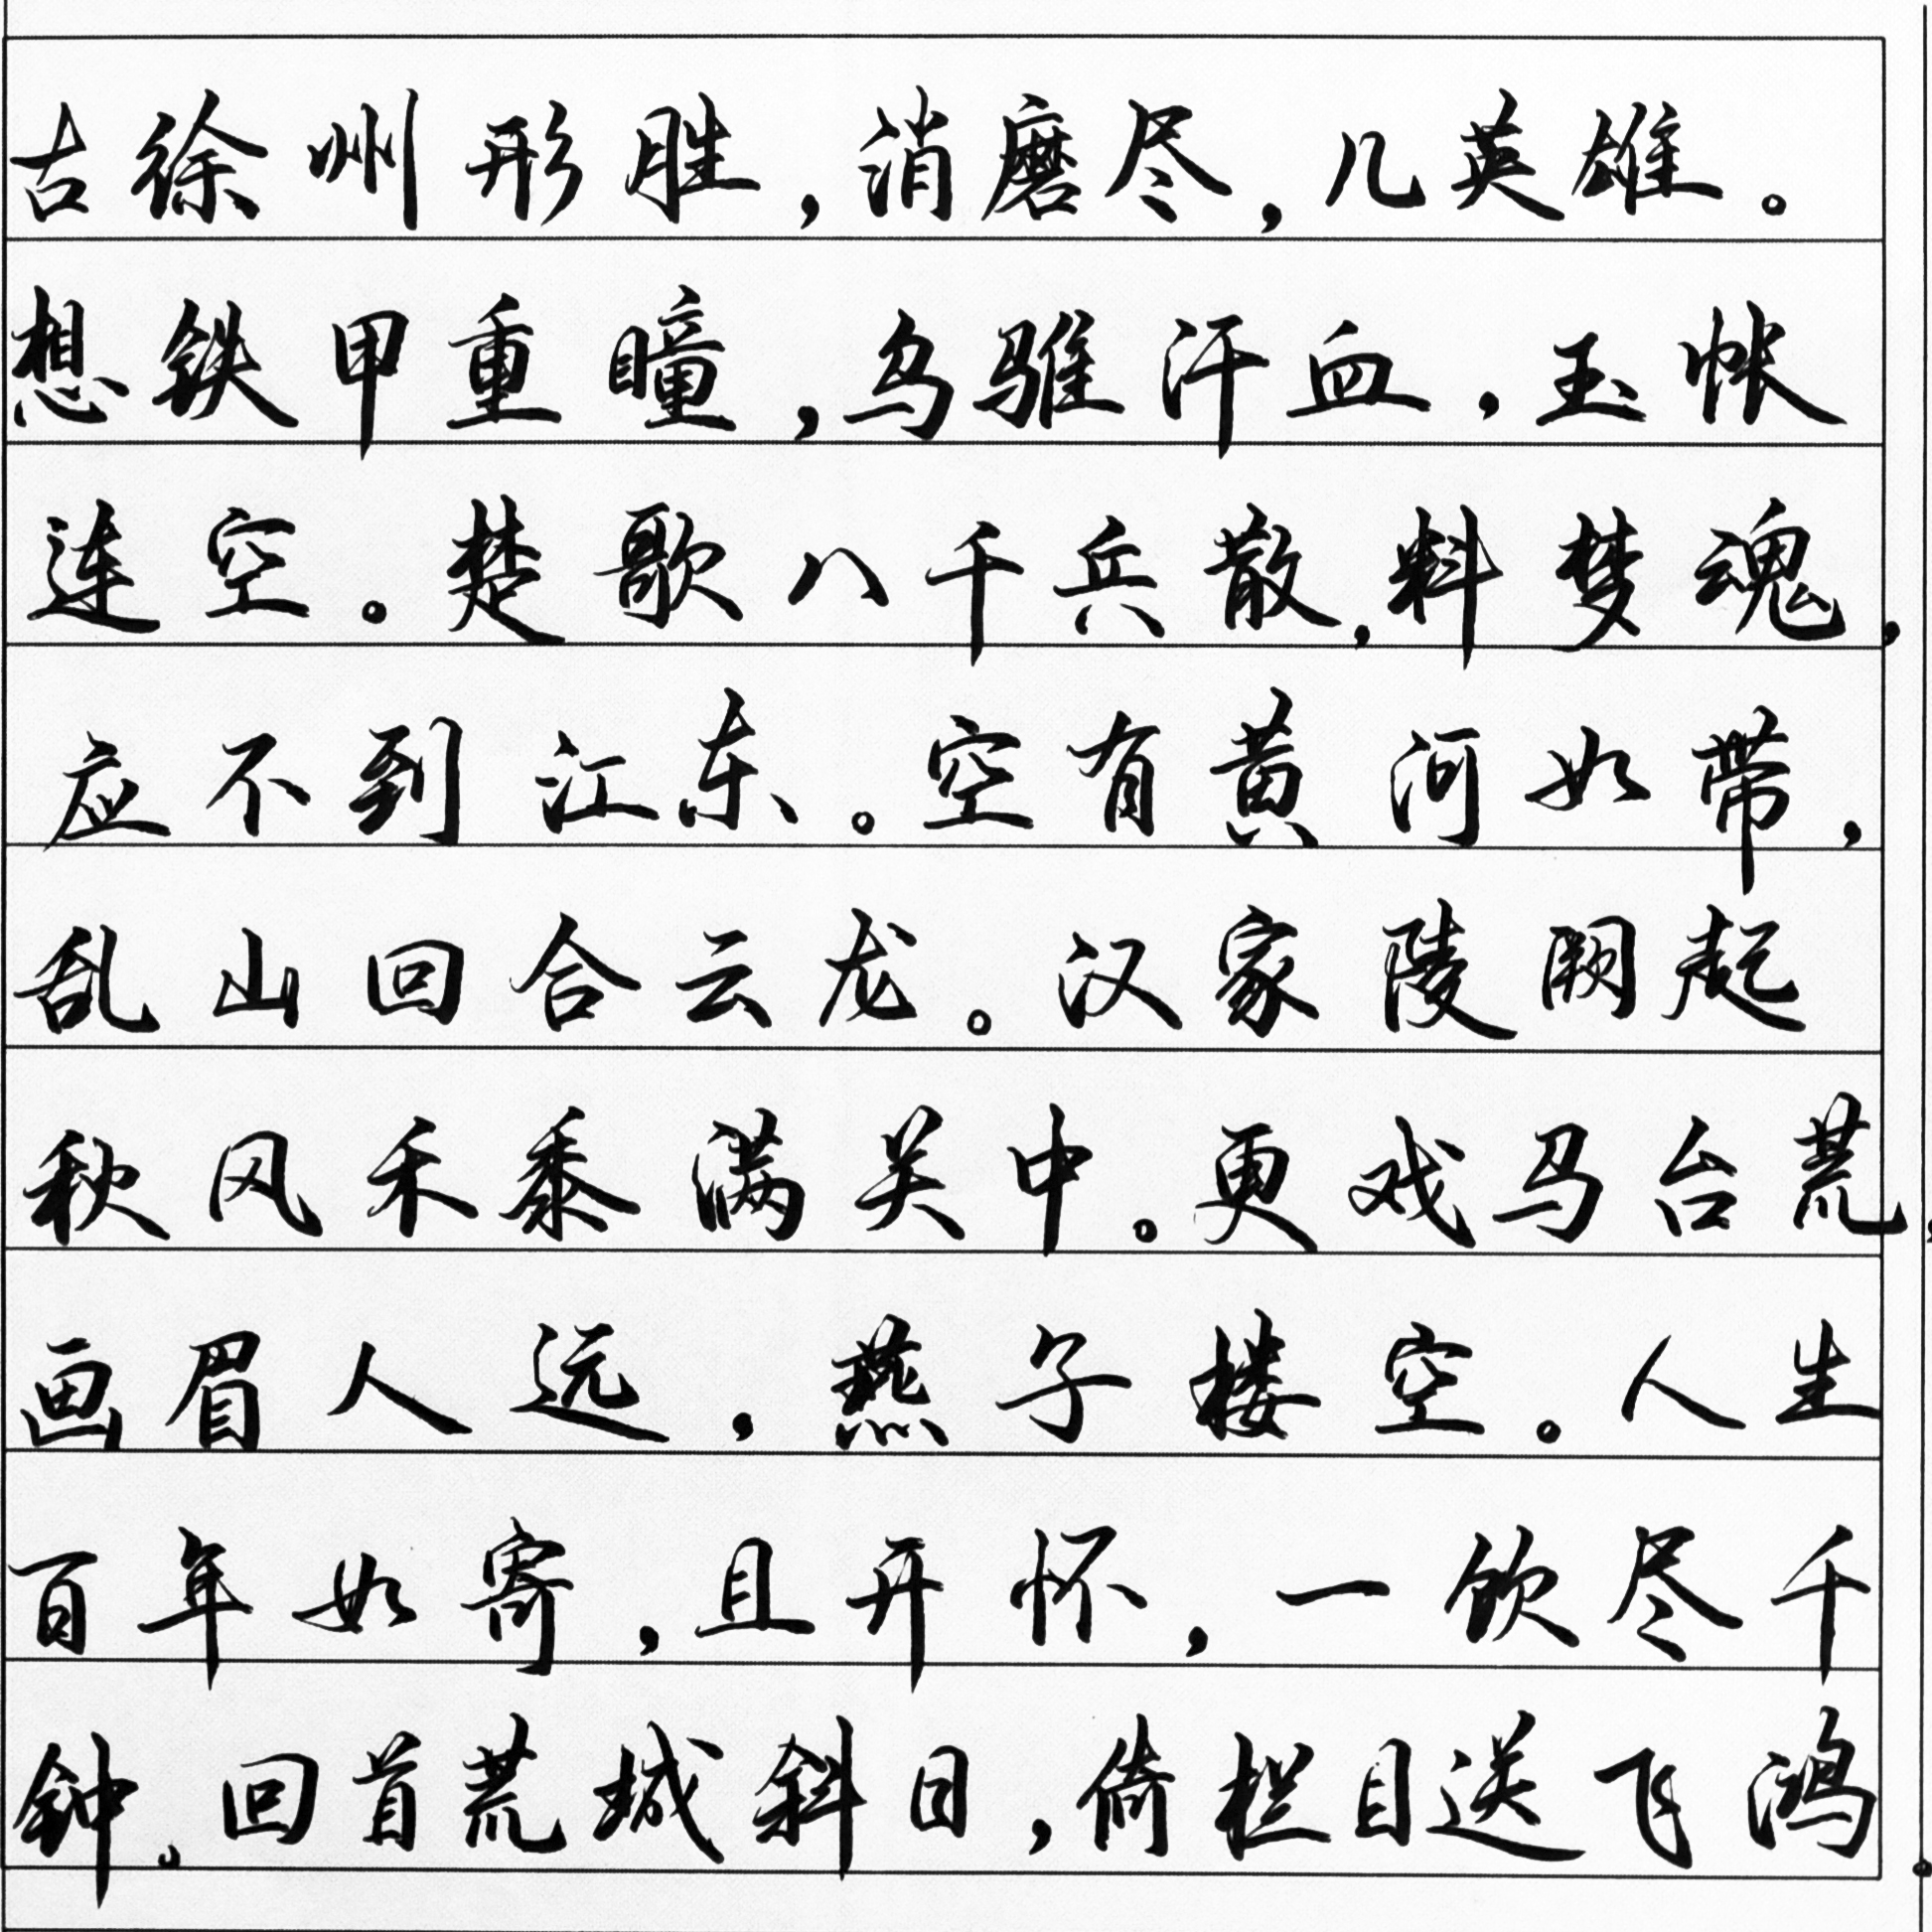 古徐州形胜,消磨尽,几英雄。
想铁甲重瞳,乌骓汗血,玉帐
连空。楚歌八千兵散,料梦魂,
应不到江东。空有黄河如带,
乱山回合云龙。汉家陵阙起
秋风禾黍满关中。更戏马台荒,
画眉人远,燕子楼空。人生
百年如寄,且开怀,一饮尽千
钟。回首荒城斜日,倚栏目送飞鸿